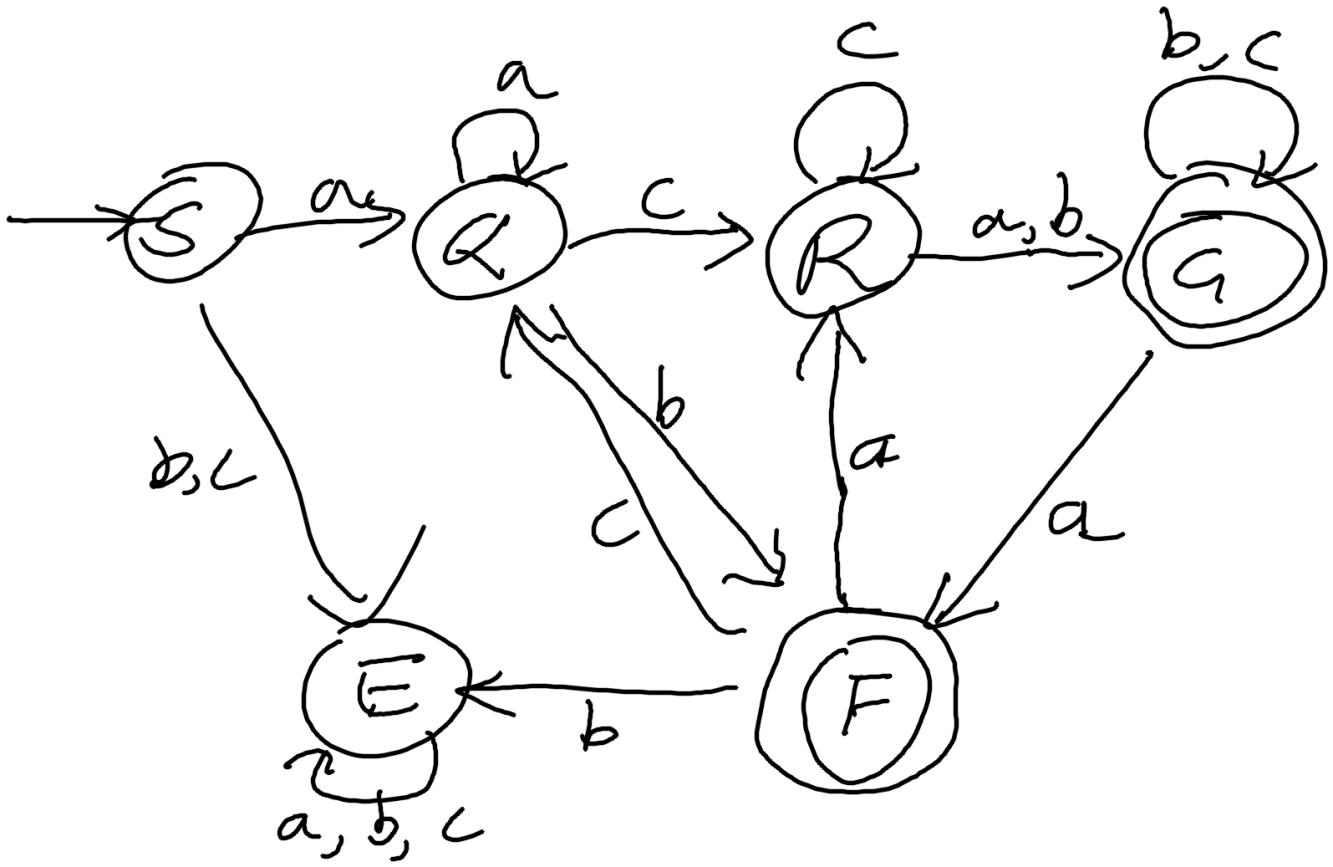 c
b, c
a
S
a
Q
c
R
a, b
G
b
a
b, c
c
a
E
b
F
a, b, c